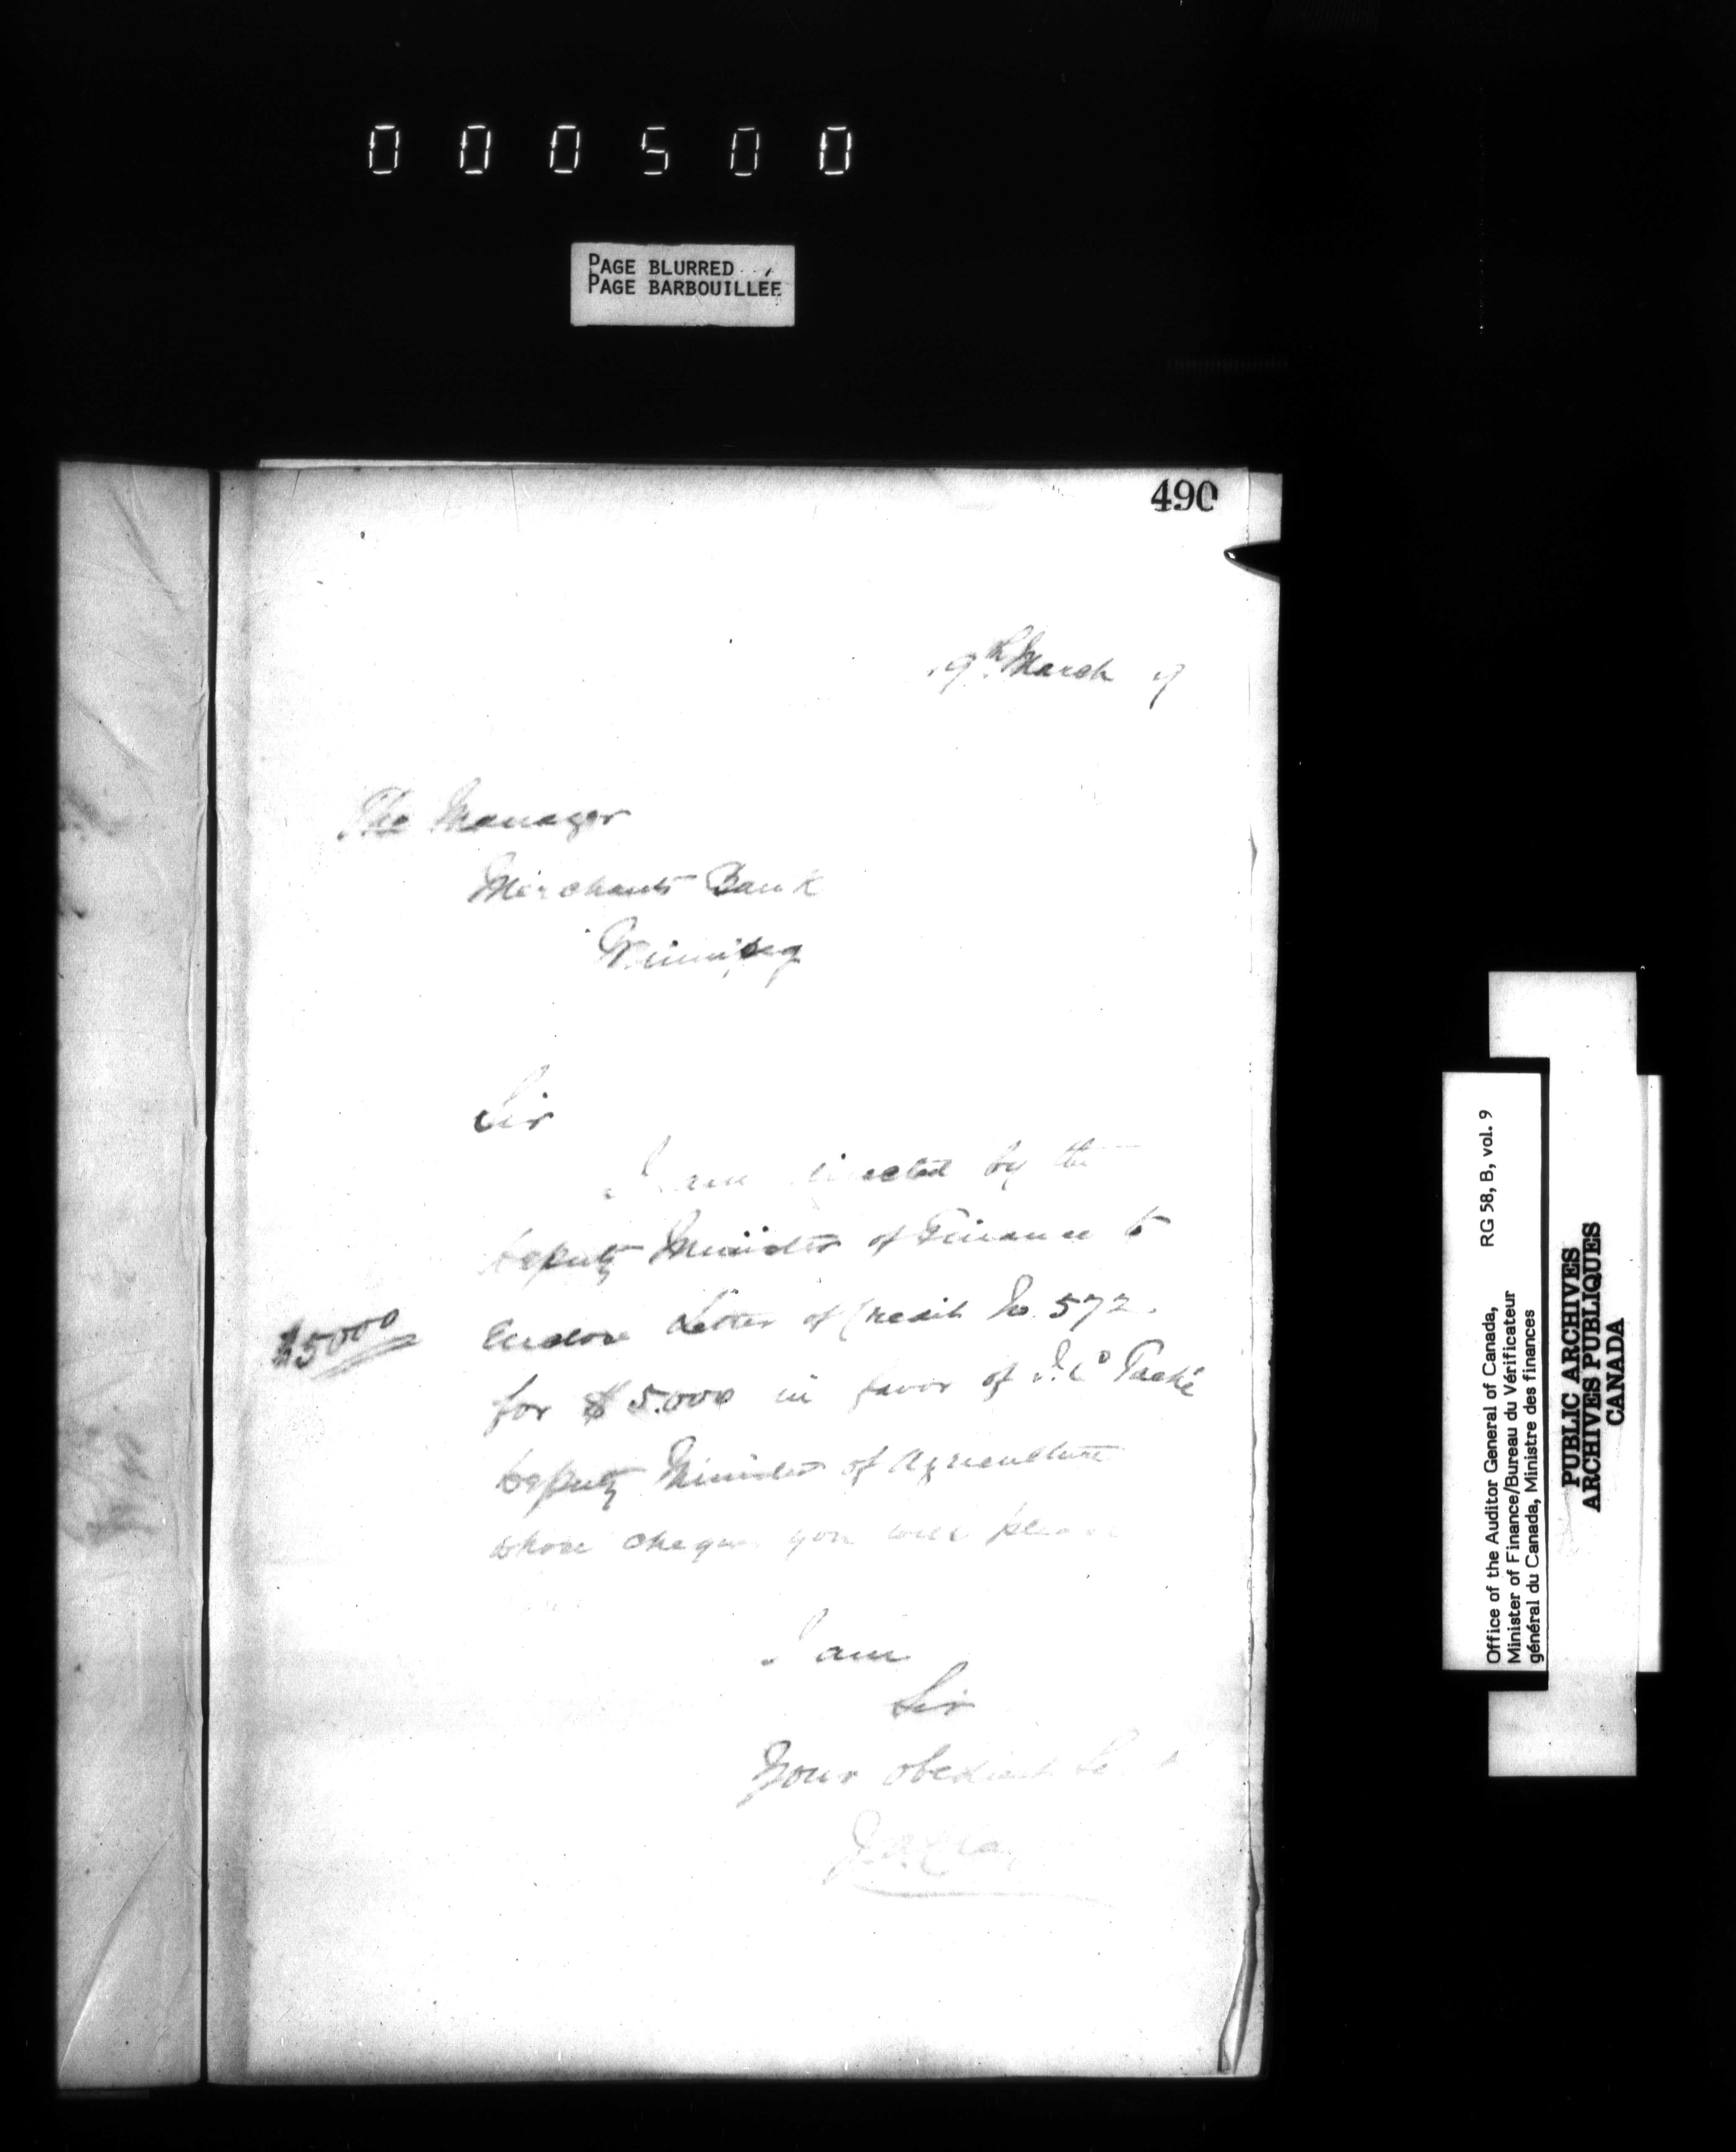 000500
PAGE BLURRED
PAGE BARBOUILLÉE
490
19th March 9
The Manager
Merchants Bank
Winnipeg
Sir
I am directed by the
Deputy Minister of Finance to
$5000
Enclose Letter of Credit No. 572.
for $5.000 in favor of J. C. Taché
Deputy Minister of Agriculture
whose cheques you will please
I am
Sir
Your obedient Servt
Office of the Auditor General of Canada, RG 58, B, vol. 9
Minister of Finance/Bureau du Vérificateur
général du Canada, Ministre des finances
PUBLIC ARCHIVES
ARCHIVES PUBLIQUES
CANADA